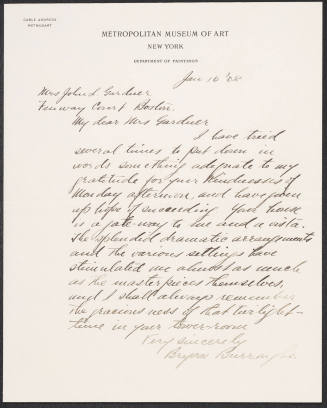 CABLE ADDRESS
METMUSART
METROPOLITAN MUSEUM OF ART
NEW YORK
DEPARTMENT OF PAINTINGS
Jan 16 '08
Mrs John L Gardner
Fenway Court Boston.
My dear Mrs Gardner
I have tried
several times to put down in
words something adequate to my
gratitude for your kindnesses of
Monday afternoon, and have given
up hope of succeeding. Your house
is a gate-way to me and a vista.
The splendid dramatic arrangements
and the various settings have
stimulated me almost as much
as the masterpieces themselves,
and I shall always remember
the graciousness of that twilight-
time in your tower-room
Very sincerely
Bryson Burroughs.